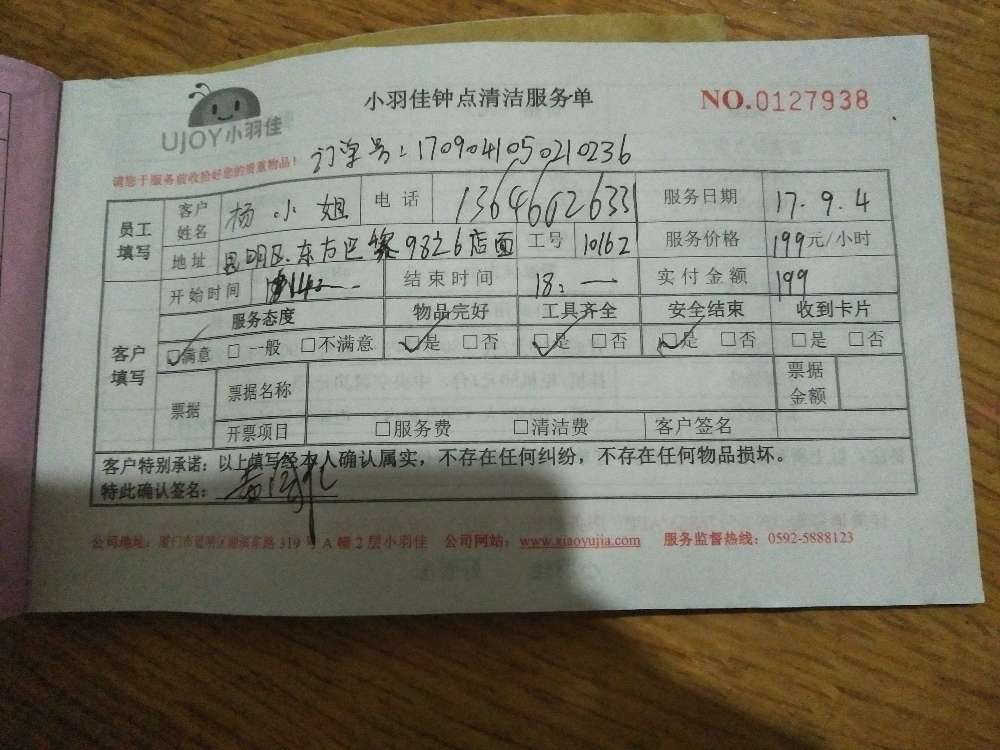 UJOY小羽佳
小羽佳钟点清洁服务单
NO.0127938
订单号:1709041050210236
请您于服务前收拾好您的贵重物品!
员工填写 客户姓名 杨小姐 电话 13646026331 服务日期 17.9.4
地址 东方巴黎9826店面 工号 10162 服务价格 199元/小时
开始时间 结束时间 18:一 实付金额 199
服务态度 物品完好 工具齐全 安全结束 收到卡片
客户填写 □满意 □一般 □不满意 □是 □否 □是 □否 □是 □否 □是 □否
票据 票据名称 票据金额
开票项目 □服务费 □清洁费 客户签名
客户特别承诺:以上填写经本人确认属实,不存在任何纠纷,不存在任何物品损坏。
特此确认签名:
公司地址:厦门市 路319号A幢2层小羽佳 公司网站:www.xiaoyujia.com 服务监督热线:0592-5888123